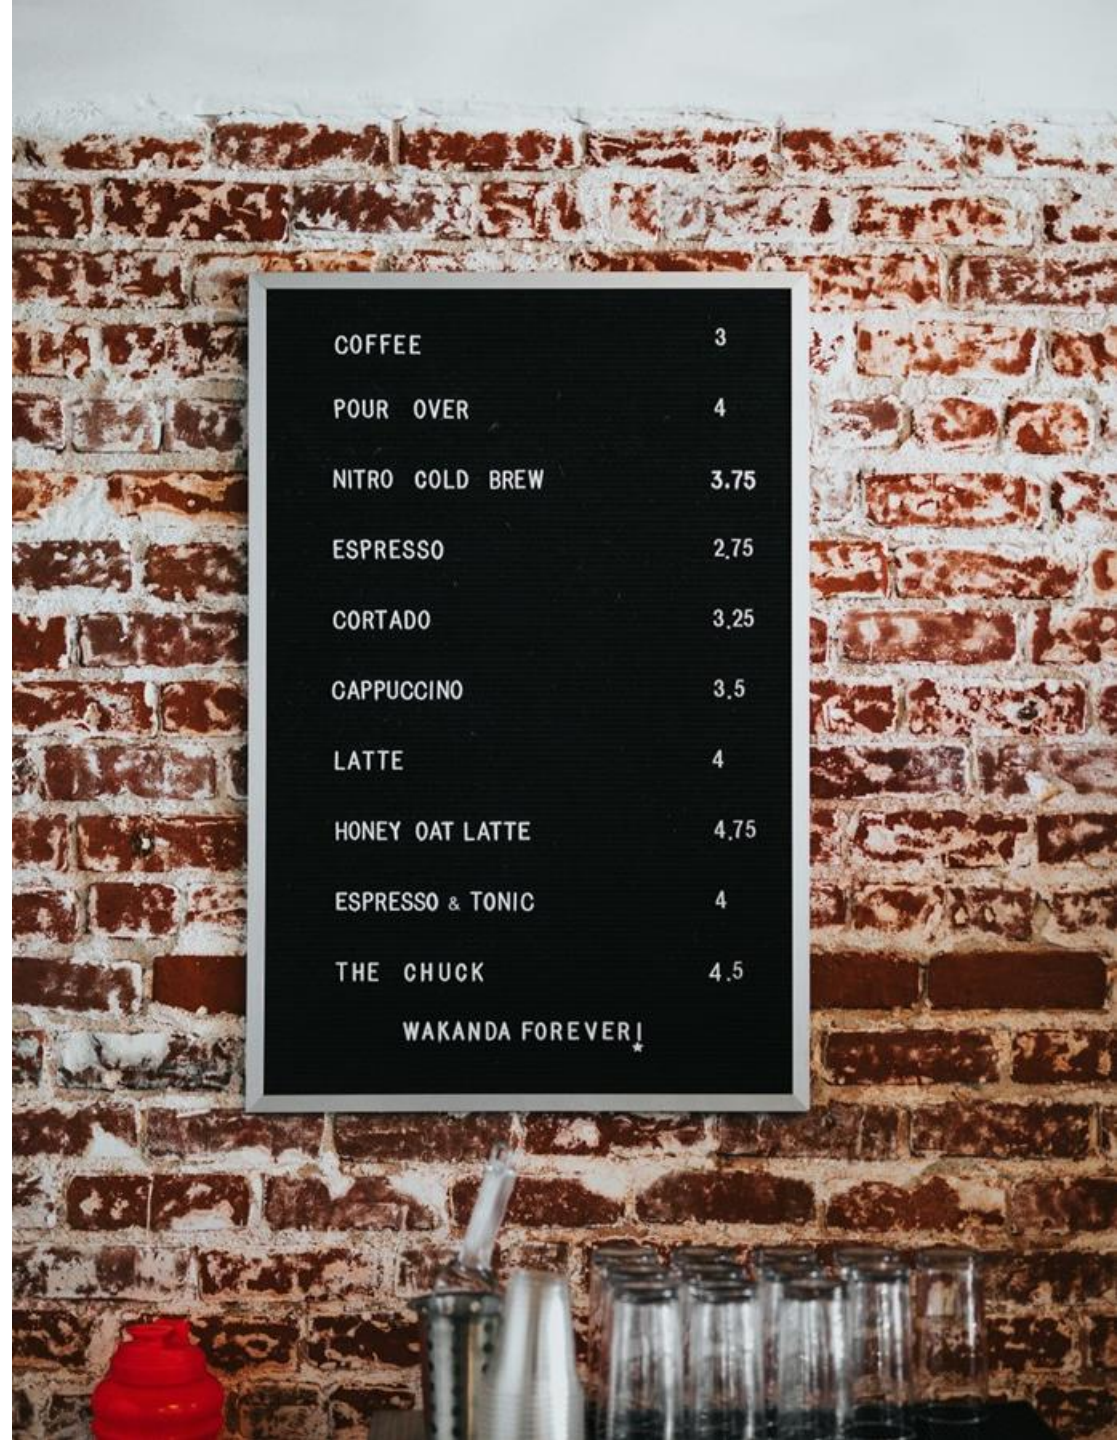 COFFEE 3
POUR OVER 4
NITRO COLD BREW 3.75
ESPRESSO 2.75
CORTADO 3.25
CAPPUCCINO 3.5
LATTE 4
HONEY OAT LATTE 4.75
ESPRESSO & TONIC 4
THE CHUCK 4.5
WAKANDA FOREVER!